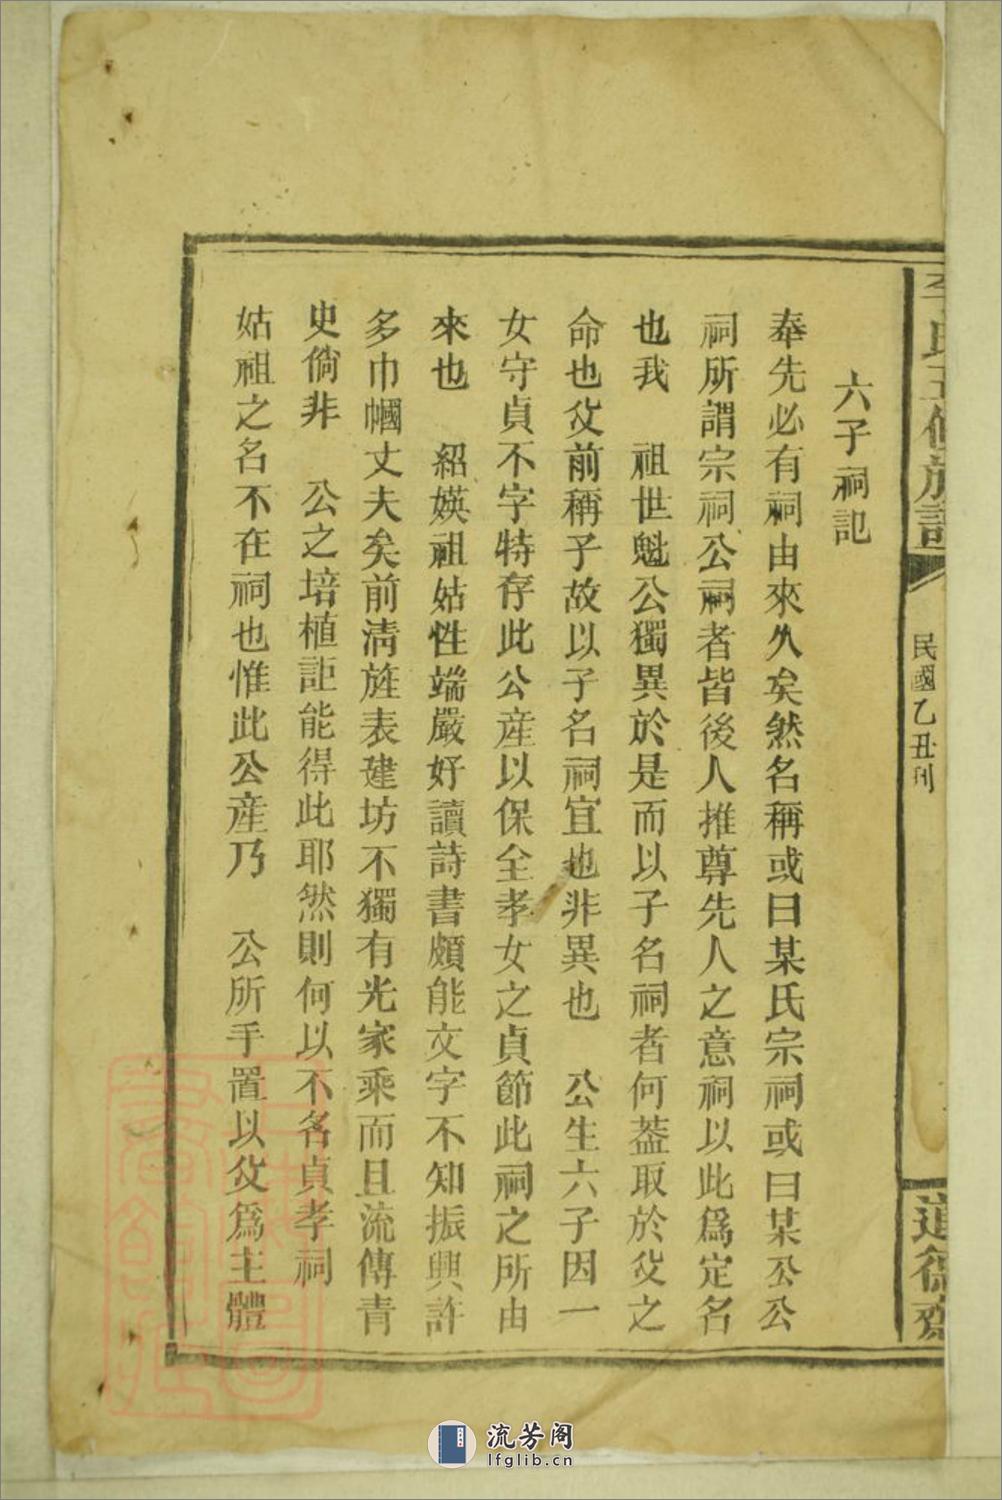 李氏五修族譜
民國乙丑刊
道德齋
六子祠記
奉先必有祠由來久矣然名稱或曰某氏宗祠或曰某公公
祠所謂宗祠公祠者皆後人推尊先人之意祠以此爲定名
也我　祖世魁公獨異於是而以子名祠者何葢取於父之
命也父前稱子故以子名祠宜也非異也　公生六子因一
女守貞不字特存此公産以保全孝女之貞節此祠之所由
來也　紹媖祖姑性端嚴好讀詩書頗能文字不知振興許
多巾幗丈夫矣前淸旌表建坊不獨有光家乘而且流傳青
史倘非　公之培植詎能得此耶然則何以不名貞孝祠
姑祖之名不在祠也惟此公産乃　公所手置以父爲主體
流芳阁
lfglib.cn